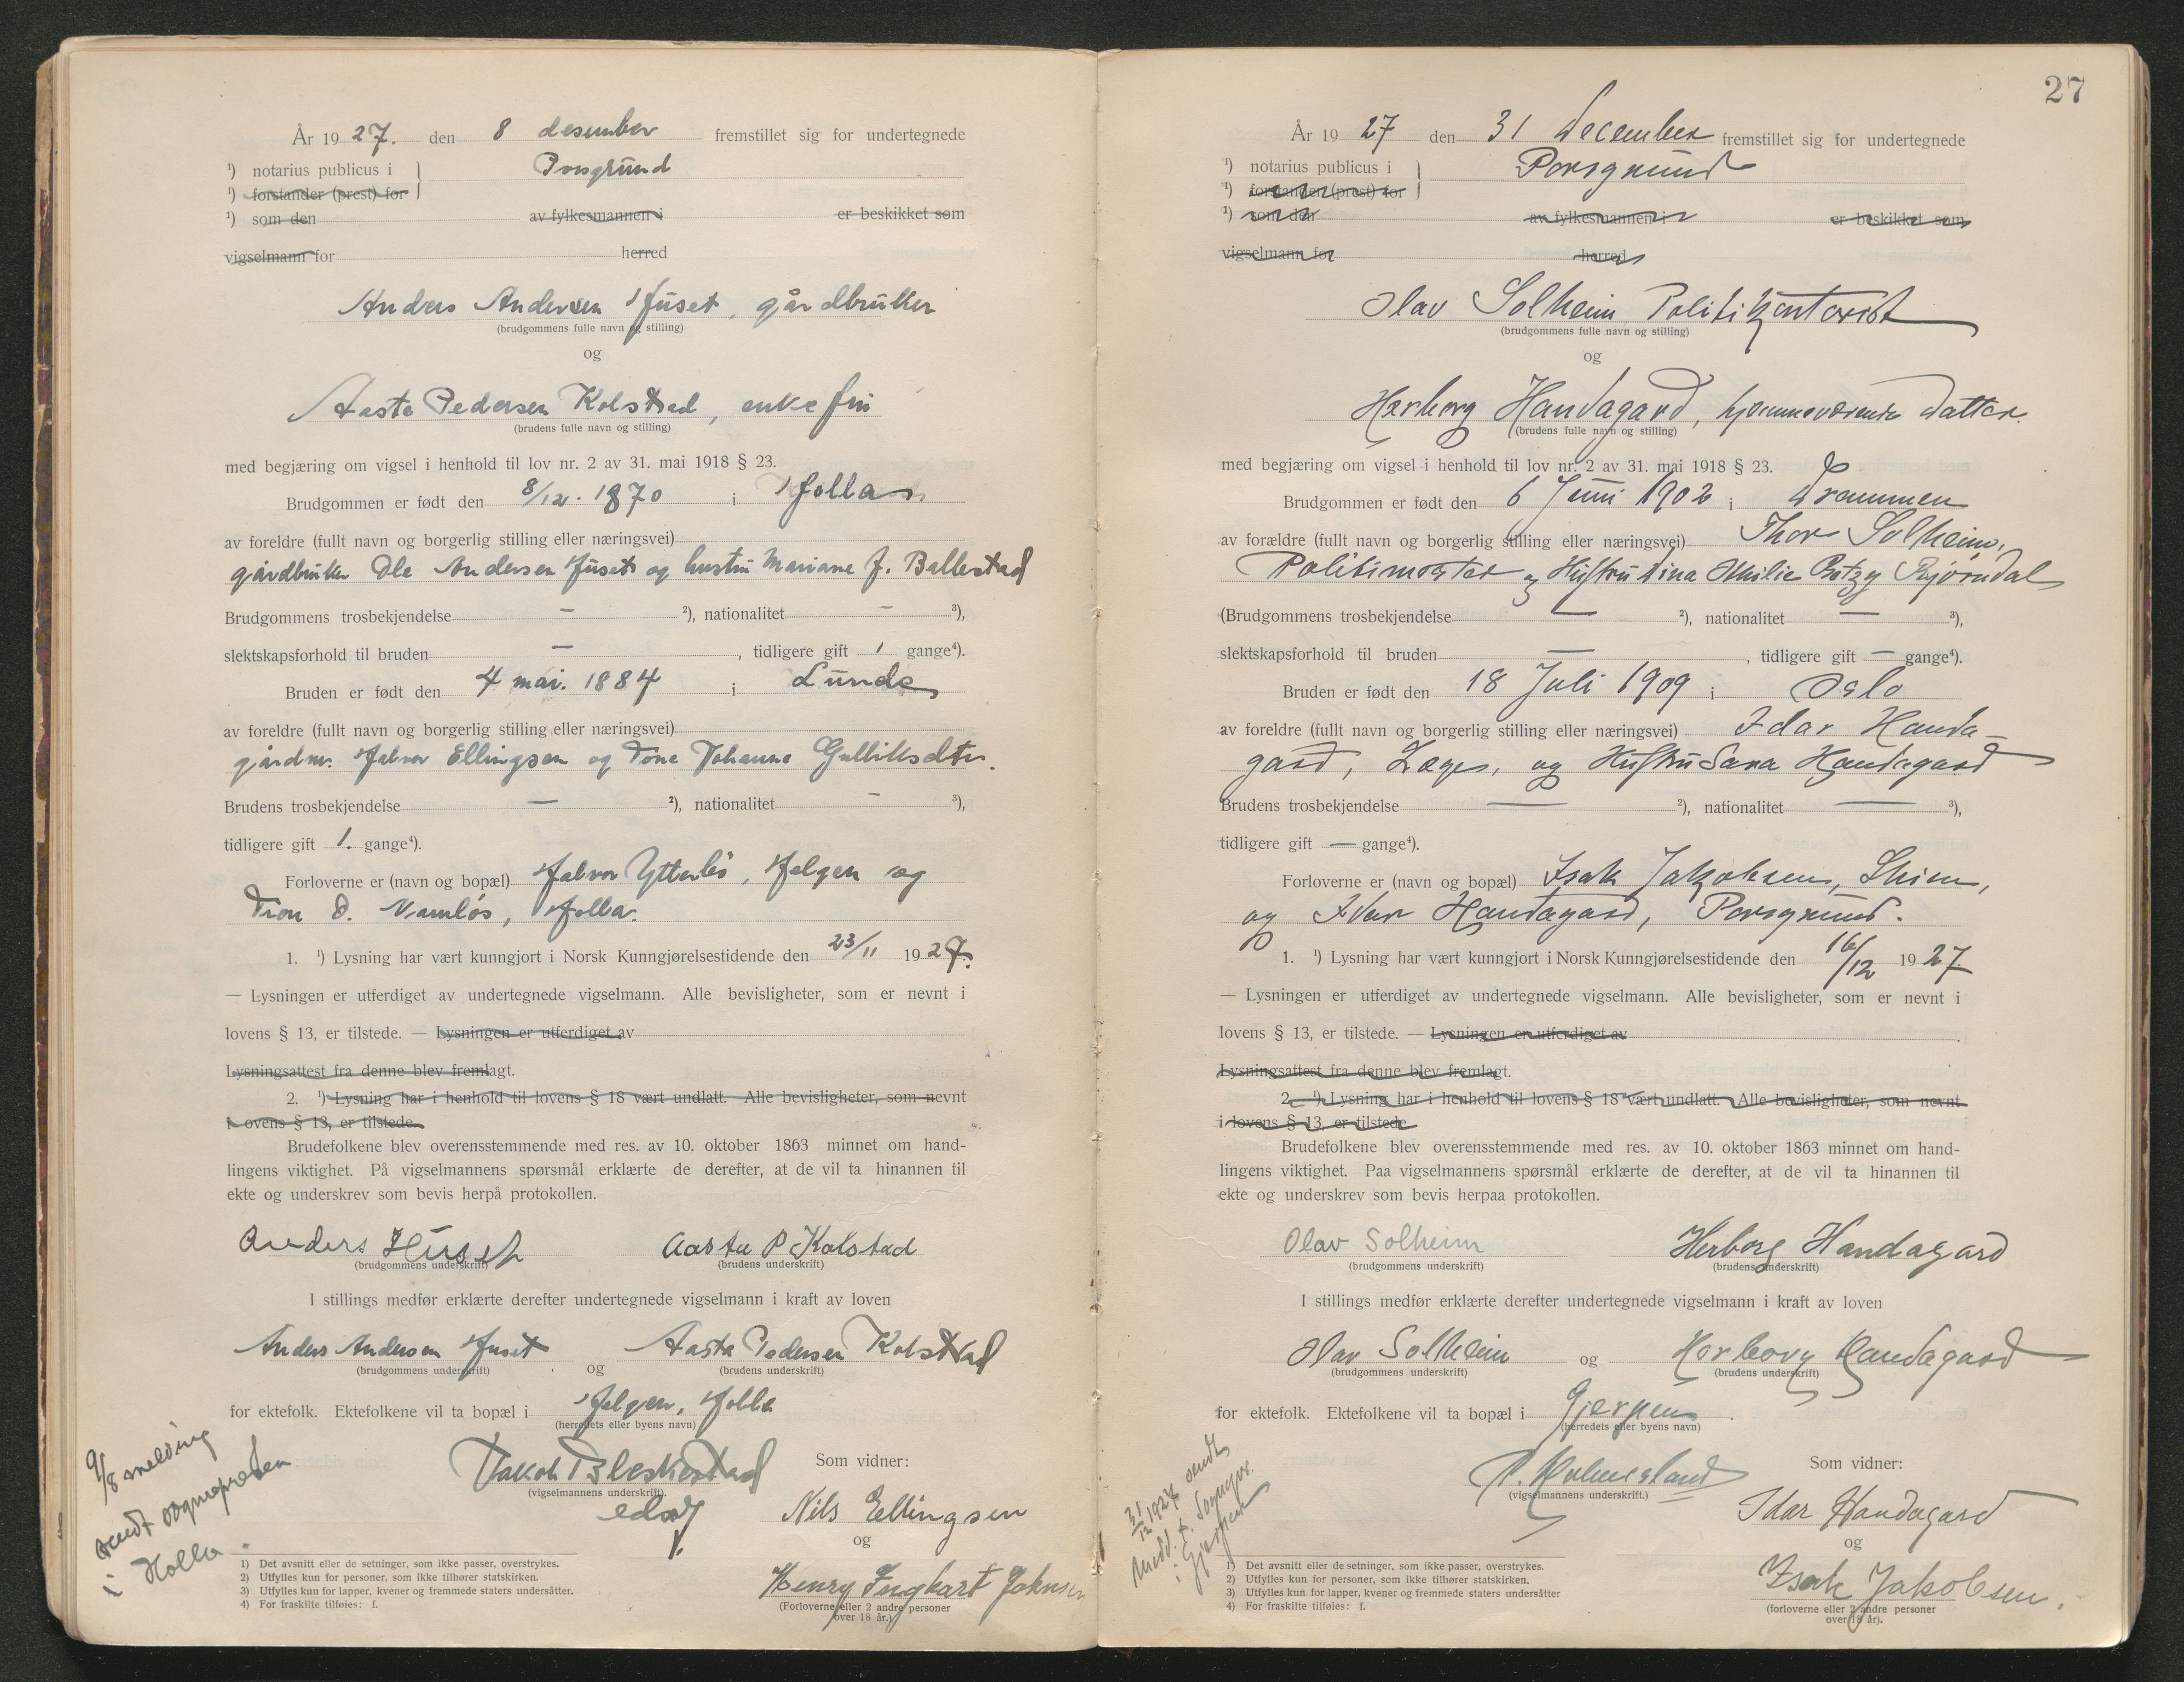 År 1927. den 8 desember fremstillet sig for undertegnede
¹) notarius publicus i Porsgrund
¹) forstander (prest) for
¹) som den av fylkesmannen i er beskikket som
vigselmann for herred
Anders Andersen Huset, gårdbruker
(brudgommens fulle navn og stilling)
og
Aasta Pedersen Kolstad, enkefru
(brudens fulle navn og stilling)
med begjæring om vigsel i henhold til lov nr. 2 av 31. mai 1918 § 23.
Brudgommen er født den 8/12. 1870 i Holla
av foreldre (fullt navn og borgerlig stilling eller næringsvei)
gårdbruker Ole Andersen Huset og hustru Mariane J. Ballestad
Brudgommens trosbekjendelse — ²), nationalitet — ³),
slektskapsforhold til bruden — , tidligere gift 1 gange⁴).
Bruden er født den 4 mai. 1884 i Lunde
av foreldre (fullt navn og borgerlig stilling eller næringsvei)
gårdbr. Halvor Ellingsen og Tone Johanne Gulliksdtr.
Brudens trosbekjendelse — ²), nationalitet — ³),
tidligere gift 1. gange⁴).
Forloverne er (navn og bopæl) Halvor Ytterbö, Helgen og
D. Namløs, Holla.
1. ¹) Lysning har vært kunngjort i Norsk Kunngjørelsestidende den 23/11 1927.
— Lysningen er utferdiget av undertegnede vigselmann. Alle bevisligheter, som er nevnt i
lovens § 13, er tilstede. — Lysningen er utferdiget av
Lysningsattest fra denne blev fremlagt.
2. ¹) Lysning har i henhold til lovens § 18 vært undlatt. Alle bevisligheter, som nevnt
i lovens § 13, er tilstede.
Brudefolkene blev overensstemmende med res. av 10. oktober 1863 minnet om hand-
lingens viktighet. På vigselmannens spørsmål erklærte de derefter, at de vil ta hinannen til
ekte og underskrev som bevis herpå protokollen.
Anders Huset Aasta P Kolstad
(brudgommens underskrift) (brudens underskrift)
I stillings medfør erklærte derefter undertegnede vigselmann i kraft av loven
Anders Andersen Huset og Aasta Pedersen Kolstad
(brudgommens underskrift) (brudens underskrift)
for ektefolk. Ektefolkene vil ta bopæl i Helgen, Holla
(herredets eller byens navn)
Jakob Bleskestad Som vidner:
(vigselmannens underskrift).
Nils Ellingsen
og
Henry Inghart Johnsen
(Forloverne eller 2 andre personer
over 18 år.)
9/8 melding
sendt sognepresten
i Holla
1) Det avsnitt eller de setninger, som ikke passer, overstrykes.
2) Utfylles kun for personer, som ikke tilhører statskirken.
3) Utfylles kun for lapper, kvener og fremmede staters undersåtter.
4) For fraskilte tilføies: f.
27
År 1927 den 31 December fremstillet sig for undertegnede
¹) notarius publicus i Porsgrund
¹) forstander (prest) for
¹) som den av fylkesmannen i er beskikket som
vigselmann for herred
Olav Solheim Politikontorist
(brudgommens fulle navn og stilling)
og
Herborg Handagard, hjemmeværende Datter.
(brudens fulle navn og stilling)
med begjæring om vigsel i henhold til lov nr. 2 av 31. mai 1918 § 23.
Brudgommen er født den 6 Juni 1902 i Drammen
av forældre (fullt navn og borgerlig stilling eller næringsvei) Thor Solheim,
Politimester og Hustru Dina Othilie Betzy Bjørndal
(Brudgommens trosbekjendelse — ²), nationalitet — ³),
slektskapsforhold til bruden — , tidligere gift — gange⁴).
Bruden er født den 18 Juli 1909 i Oslo
av foreldre (fullt navn og borgerlig stilling eller næringsvei) Idar Handa-
gard, Læge, og Hustru Sara Handagard
Brudens trosbekjendelse — ²), nationalitet — ³),
tidligere gift — gange⁴).
Forloverne er (navn og bopæl) Isak Jakobsen, Skien,
og Idar Handagard, Porsgrund.
1. ¹) Lysning har vært kunngjort i Norsk Kunngjørelsestidende den 16/12 1927.
— Lysningen er utferdiget av undertegnede vigselmann. Alle bevisligheter, som er nevnt i
lovens § 13, er tilstede. — Lysningen er utferdiget av
Lysningsattest fra denne blev fremlagt.
2. ¹) Lysning har i henhold til lovens § 18 vært undlatt. Alle bevisligheter, som nevnt
i lovens § 13, er tilstede
Brudefolkene blev overensstemmende med res. av 10. oktober 1863 minnet om hand-
lingens viktighet. Paa vigselmannens spørsmål erklærte de derefter, at de vil ta hinannen til
ekte og underskrev som bevis herpaa protokollen.
Olav Solheim Herborg Handagard
(brudgommens underskrift) (brudens underskrift)
I stillings medfør erklærte derefter undertegnede vigselmann i kraft av loven
Olav Solheim og Herborg Handagard
(brudgommens underskrift) (brudens underskrift)
for ektefolk. Ektefolkene vil ta bopæl i Gjerpen.
(herredets eller byens navn)
Som vidner:
(vigselmannens underskrift.)
Idar Handagard
og
Isak Jakobsen.
(forloverne eller 2 andre personer
over 18 år).
31/12 1927 sendt
Medd. t. Sogneprs.
i Gjerpen
1) Det avsnitt eller de setninger, som ikke passer, overstrykes.
2) Utfylles kun for personer, som ikke tilhører statskirken.
3) Utfylles kun for lapper, kvener og fremmede staters undersåtter
4) For fraskilte tilføies: f.